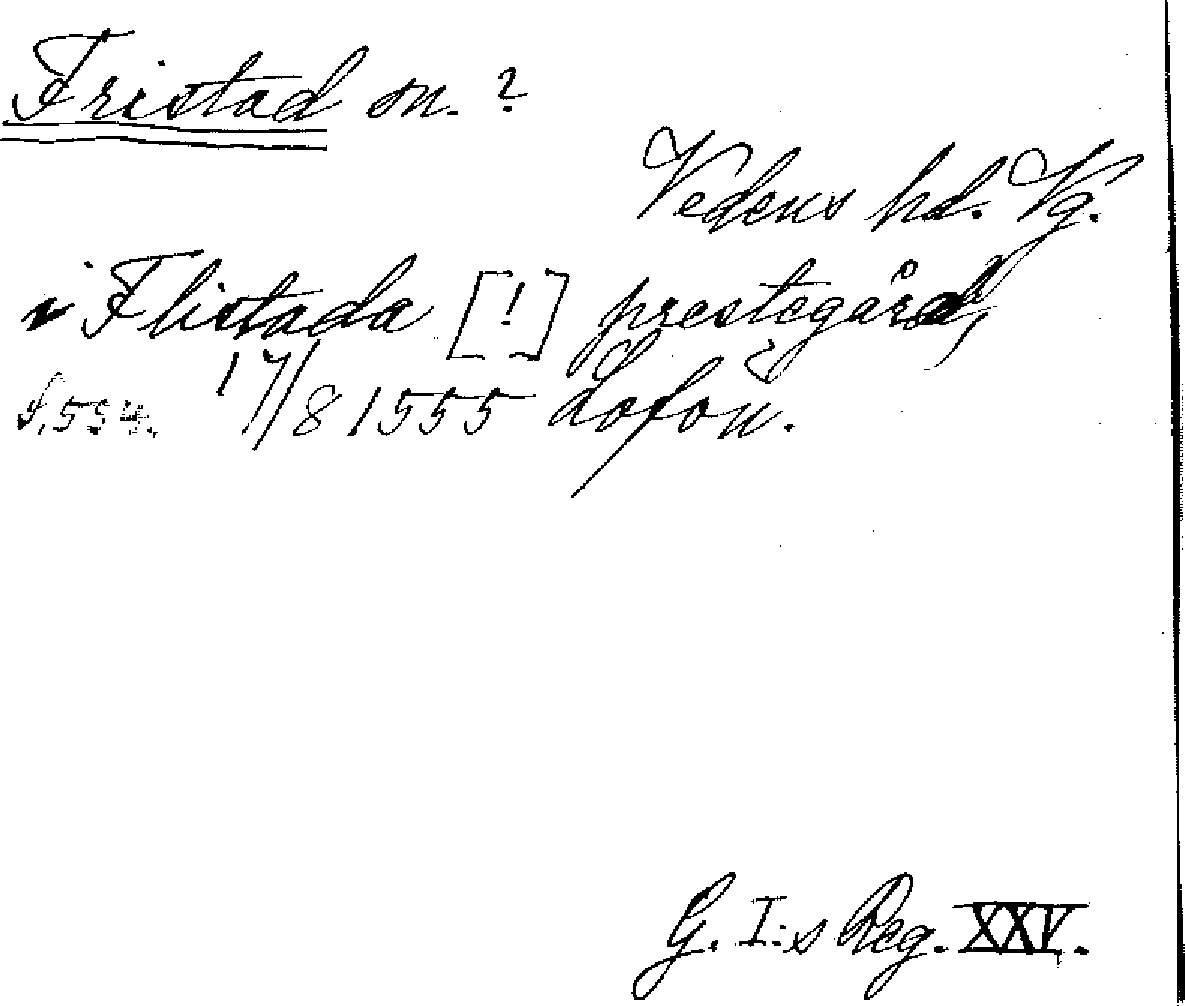 Fristad sn. ?
Vedens hd. Vg.
i Flistada [!] prestegård,
S. 554. 17/8 1555 Lofön.
G. I:s Reg. XXV.